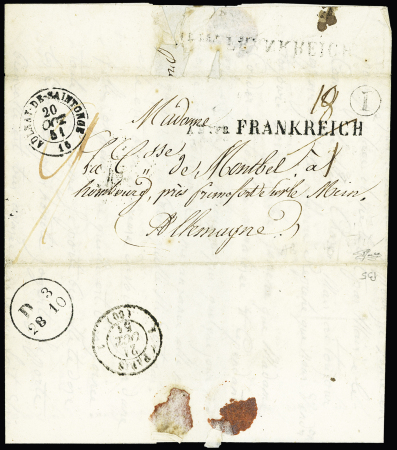 AULNAY-DE-SAINTONGE
20
OCT
51
16
18
1
Madame
FRANKREICH
La Ctsse de Montbel à
hombourg, près francfort sur le Mein,
Allemagne
D 3
28 10
PARIS
21
OCT
51
(60)